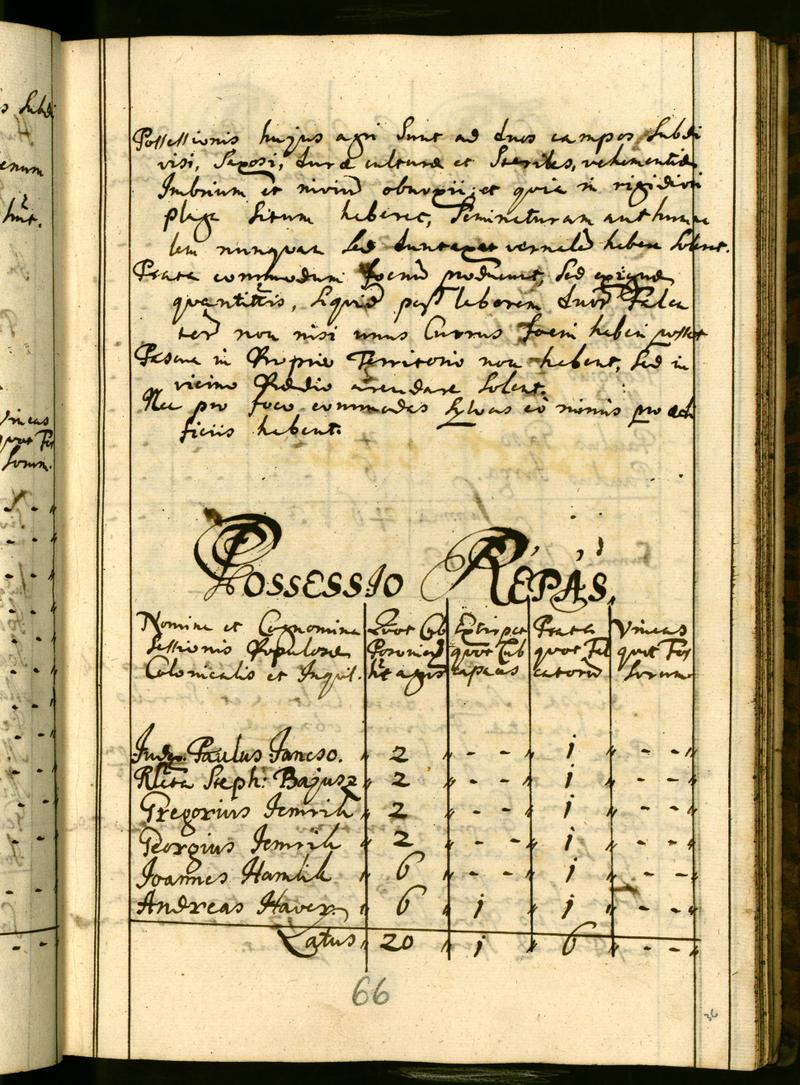 Possessionis hujus agri sunt ad duos campos subdi
visi, Saxosi, durae culturae et Steriles, vehementiae
Imbrium et nivium obnoxii, et quia in rigidiori
plaga Situm haberet, Seminaturam authumna
lem nunquam sed duntaxat vernalem habere Solent.
Prata commodum foenum producunt, sed exiguae
quantitatis, siquidem post laborem duorum Falca
torum non nisi unus Currus foeni haberi posset
Pascua in Proprio Territorio non habent, sed in
vicino Praedio arendare solent.
Nec pro foco commodas Sylvas eo minus pro aedi
ficiis habent.
Possessio Répás,
Nomina et Cognomina Quot Cub Extirpat Prata Vineas
Sessionis Populorum Posoniens quot Cub quot Fal quot Fos
Colonicalis et Inquil. hūt agros capaces catorum sorum
Judex Paulus Iancso. " 2 " - - " 1 " - - "
Rlcta Steph: Bajusz " 2 " - - " 1 " - - "
Gregorius Iemrih " 2 " - - " 1 " - - "
Georgius Iemrih " 2 " - - " 1 " - - "
Joannes Hamlik " 6 " - - " 1 " - - "
Andreas Haver. " 6 " 1 " 1 " - - "
Latus " 20 " 1 " 6 " - - "
66
36